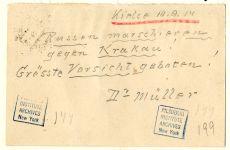 Kielce 10.8.14
Russen marschieren
gegen Krakau!
Grösste Vorsicht geboten!
Dr Müller
PILSUDSKI
INSTITUTE
ARCHIVES
New York
PILSUDSKI
INSTITUTE
ARCHIVES
New York
199